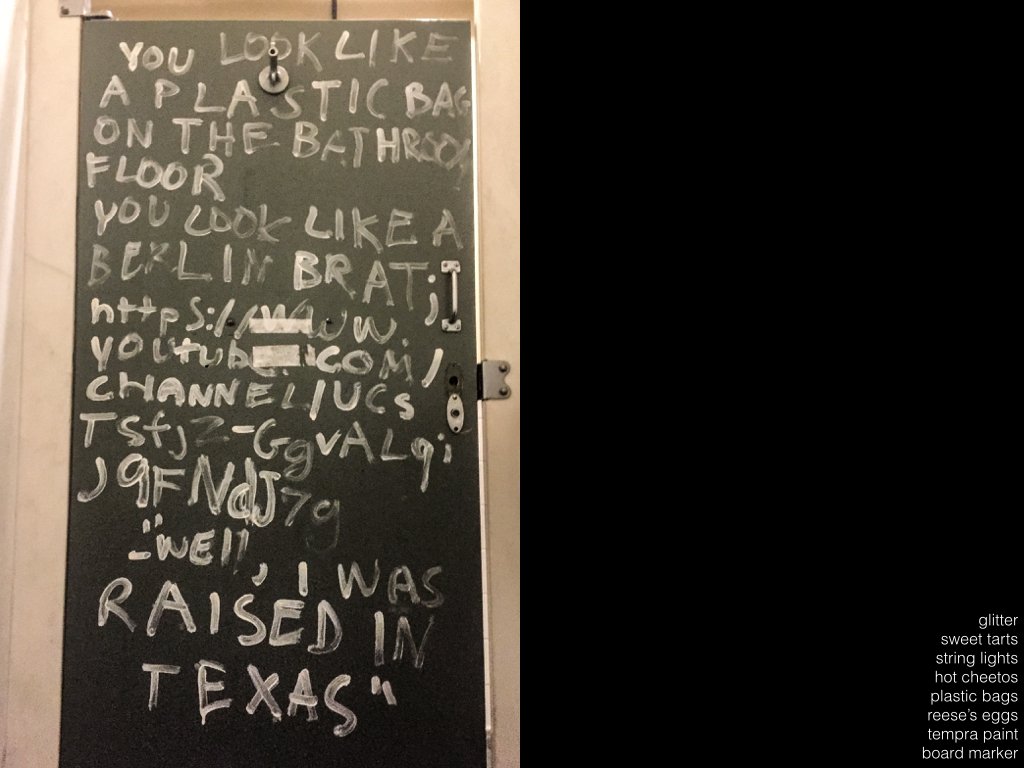 YOU LOOK LIKE
A PLASTIC BAG
ON THE BATHROOM
FLOOR
YOU LOOK LIKE A
BERLIN BRAT;
https://www.
youtube.COM/
CHANNEL/UCs
TSfjZ-GgvALqi
J9FNdJ7g
-"WEll, I WAS
RAISED IN
TEXAS"
glitter
sweet tarts
string lights
hot cheetos
plastic bags
reese's eggs
tempra paint
board marker